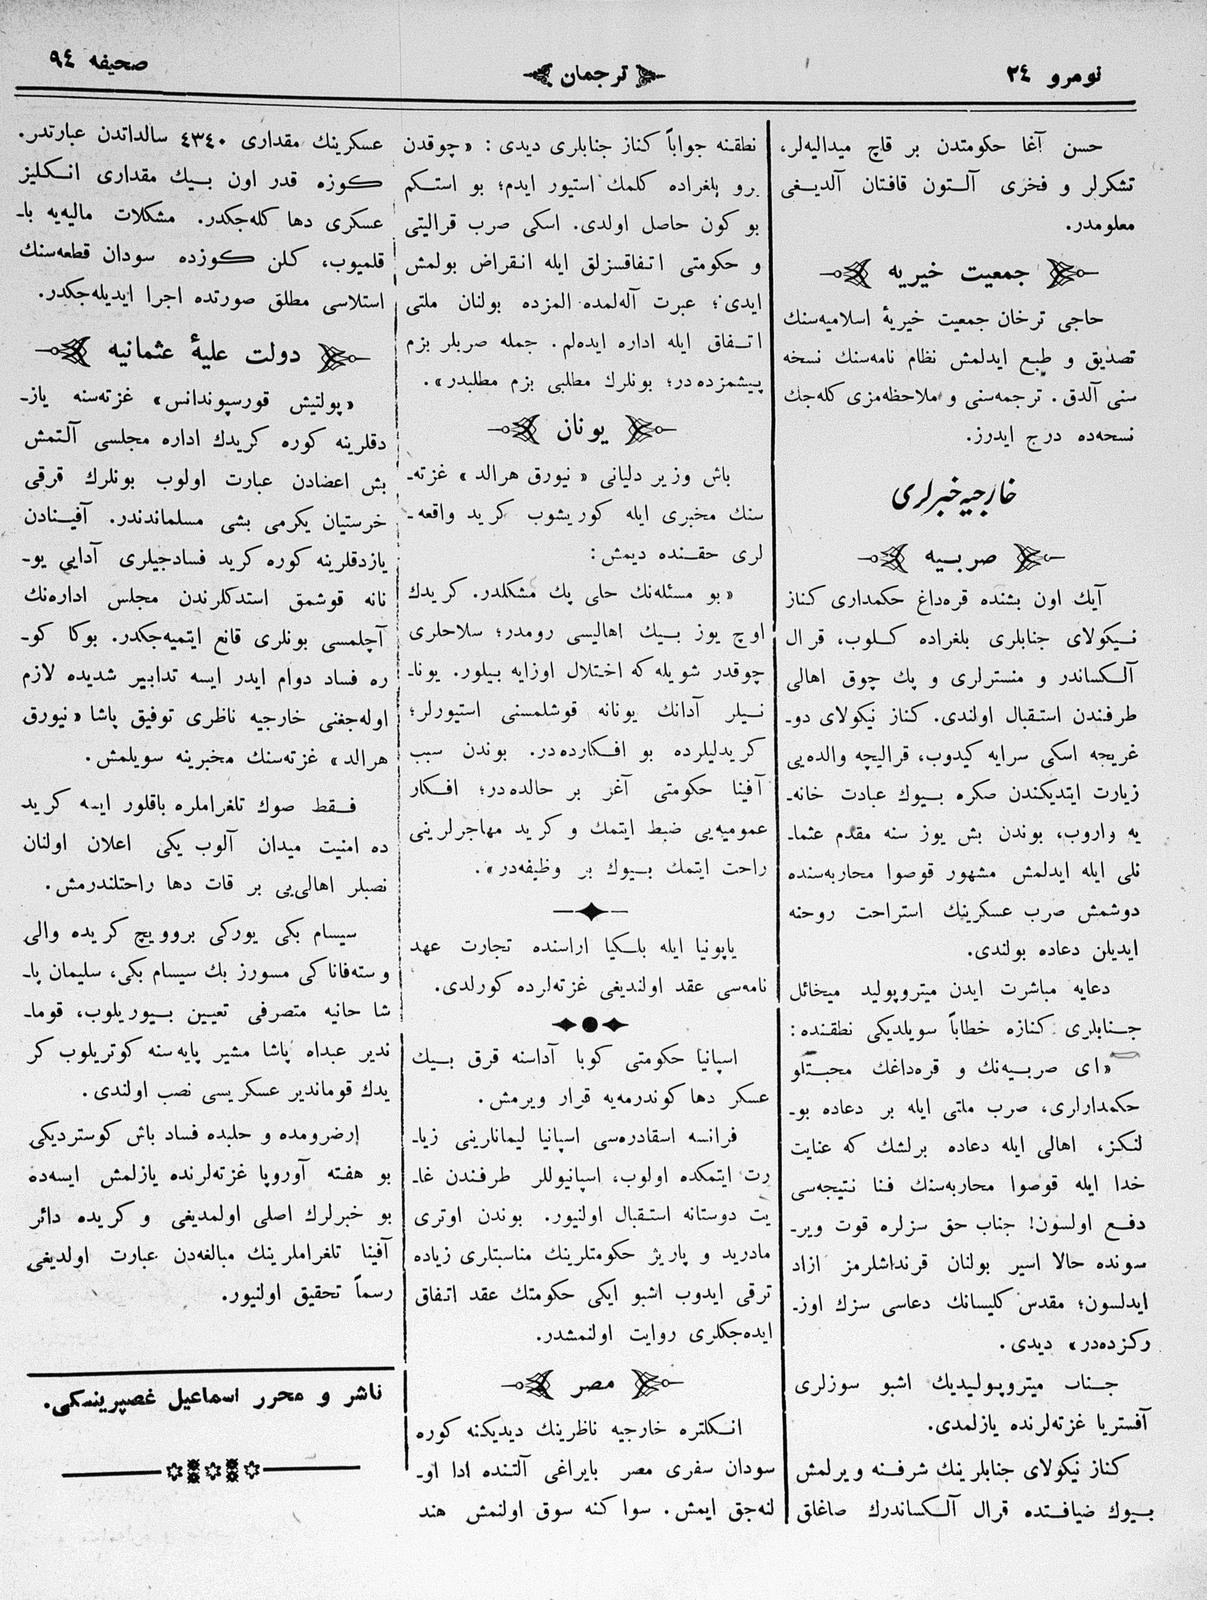 نومرو ٢٤
ترجمان
صحیفه ٩٤
حسن آغا حکومتدن بر قاچ میدالیه‌لر،
تشکرلر و فخری آلتون قافتان آلدیغی
معلومدر.
جمعیت خیریه
حاجی ترخان جمعیت خیریهٔ اسلامیه‌سنك
تصدیق و طبع ایدلمش نظام نامه‌سنك نسخه
سنی آلدق. ترجمه‌سنی و ملاحظه‌مزی کله‌جك
نسخه‌ده درج ایدرز.
خارجیه خبرلری
صربیه
آیك اون بشنده قره‌داغ حکمداری کناز
نیکولای جنابلری بلغراده کلوب، قرال
آلکساندر و منسترلری و پك چوق اهالی
طرفندن استقبال اولندی. کناز نیکولای دو-
غریجه اسکی سرایه کیدوب، قرالیچه والده‌یی
زیارت ایتدیکندن صکره بیوك عبادت خانه-
یه واروب، بوندن بش یوز سنه مقدم عثما-
نلی ایله ایدلمش مشهور قوصوا محاربه‌سنده
دوشمش صرب عسکرینك استراحت روحنه
ایدیلن دعاده بولندی.
دعایه مباشرت ایدن میتروپولید میخائل
جنابلری کنازه خطاباً سویلدیکی نطقنده:
«ای صربیه‌نك و قره‌داغك محبتلو
حکمدارلری، صرب ملتی ایله بر دعاده بو-
لنکز، اهالی ایله دعاده برلشك که عنایت
خدا ایله قوصوا محاربه‌سنك فنا نتیجه‌سی
دفع اولسون! جناب حق سزلره قوت ویر-
سونده حالا اسیر بولنان قرنداشلرمز ازاد
ایدلسون؛ مقدس کلیسانك دعاسی سزك اوز-
رکزده‌در» دیدی.
جناب میتروپولیدیك اشبو سوزلری
آفستریا غزته‌لرنده یازلمدی.
کناز نیکولای جنابلرینك شرفنه ویرلمش
بیوك ضیافتده قرال آلکساندرك صاغلق
نطقنه جواباً کناز جنابلری دیدی: «چوقدن
برو بلغراده کلمك استیور ایدم؛ بو استکم
بو کون حاصل اولدی. اسکی صرب قرالیتی
و حکومتی اتفاقسزلق ایله انقراض بولمش
ایدی؛ عبرت آله‌لمده المزده بولنان ملتی
اتفاق ایله اداره ایده‌لم. جمله صربلر بزم
پیشمزده‌در؛ بونلرك مطلبی بزم مطلبدر».
یونان
باش وزیر دلیانی «نیورق هرالد» غزته-
سنك مخبری ایله کوریشوب کرید واقعه-
لری حقنده دیمش:
«بو مسئله‌نك حلی پك مشکلدر. کریدك
اوچ یوز بیك اهالیسی رومدر؛ سلاحلری
چوقدر شویله که اختلال اوزایه بیلور. یونا-
نیلر آدانك یونانه قوشلمسنی استیورلر؛
کریدلیلرده بو افکارده‌در. بوندن سبب
آفینا حکومتی آغز بر حالده‌در؛ افکار
عمومیه‌یی ضبط ایتمك و کرید مهاجرلرینی
راحت ایتمك بیوك بر وظیفه‌در».
یاپونیا ایله بلکیا اراسنده تجارت عهد
نامه‌سی عقد اولندیغی غزته‌لرده کورلدی.
اسپانیا حکومتی کوبا آداسنه قرق بیك
عسکر دها کوندرمه‌یه قرار ویرمش.
فرانسه اسقادره‌سی اسپانیا لیمانارینی زیا-
رت ایتمکده اولوب، اسپانیوللر طرفندن غا-
یت دوستانه استقبال اولنیور. بوندن اوتری
مادرید و پاریژ حکومتلرینك مناسبتلری زیاده
ترقی ایدوب اشبو ایکی حکومتك عقد اتفاق
ایده‌جکلری روایت اولنمشدر.
مصر
انکلتره خارجیه ناظرینك دیدیکنه کوره
سودان سفری مصر بایراغی آلتنده ادا او-
لنه‌جق ایمش. سواکنه سوق اولنمش هند
عسکرینك مقداری ٤٣٤٠ سالداتدن عبارتدر.
کوزه قدر اون بیك مقداری انکلیز
عسکری دها کله‌جکدر. مشکلات مالیه‌یه با-
قلمیوب، کلن کوزده سودان قطعه‌سنك
استلاسی مطلق صورتده اجرا ایدیله‌جکدر.
دولت علیهٔ عثمانیه
«پولتیش قورسپوندانس» غزته‌سنه یاز-
دقلرینه کوره کریدك اداره مجلسی آلتمش
بش اعضادن عبارت اولوب بونلرك قرقی
خرستیان یکرمی بشی مسلماندندر. آفینادن
یازدقلرینه کوره کرید فسادجیلری آدایی یو-
نانه قوشمق استدکلرندن مجلس اداره‌نك
آچلمسی بونلری قانع ایتمیه‌جکدر. بوکا کو-
ره فساد دوام ایدر ایسه تدابیر شدیده لازم
اوله‌جغنی خارجیه ناظری توفیق پاشا «نیورق
هرالد» غزته‌سنك مخبرینه سویلمش.
فقط صوك تلغراملره باقلور ایسه کرید
ده امنیت میدان آلوب یکی اعلان اولنان
نصبلر اهالی‌یی بر قات دها راحتلندرمش.
سیسام بکی یورکی بروویچ کریده والی
و سته‌فاناکی مسورز بك سیسام بکی، سلیمان پا-
شا حانیه متصرفی تعیین بیوریلوب، قوما-
ندیر عبداه پاشا مشیر پایه‌سنه کوتریلوب کر
یدك قوماندیر عسکریسی نصب اولندی.
إرضرومده و حلبده فساد باش کوستردیکی
بو هفته آوروپا غزته‌لرنده یازلمش ایسه‌ده
بو خبرلرك اصلی اولمدیغی و کریده دائر
آفینا تلغراملرینك مبالغه‌دن عبارت اولدیغی
رسماً تحقیق اولنیور.
ناشر و محرر اسماعیل غصپرینسکی.